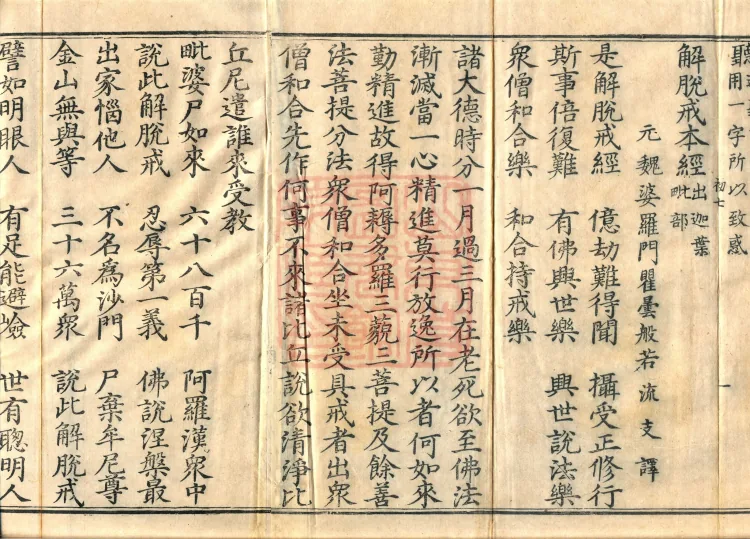 聽用一字所以致惑
解脫戒本經出迦葉毗部
初七
元魏婆羅門瞿曇般若流支譯
是解脫戒經 億劫難得聞 攝受正修行
斯事倍復難 有佛興世樂 興世說法樂
眾僧和合樂 和合持戒樂
諸大德時分一月過三月在老死欲至佛法
漸滅當一心精進莫行放逸所以者何如來
勤精進故得阿耨多羅三藐三菩提及餘善
法菩提分法眾僧和合坐未受具戒者出眾
僧和合先作何事不來諸比丘說欲清淨比
丘尼遣誰來受教
毗婆尸如來 六十八百千 阿羅漢眾中
說此解脫戒 忍辱第一義 佛說涅槃最
出家惱他人 不名為沙門 尸棄牟尼尊
金山無與等 三十六萬眾 說此解脫戒
譬如明眼人 有足能避險 世有聰明人